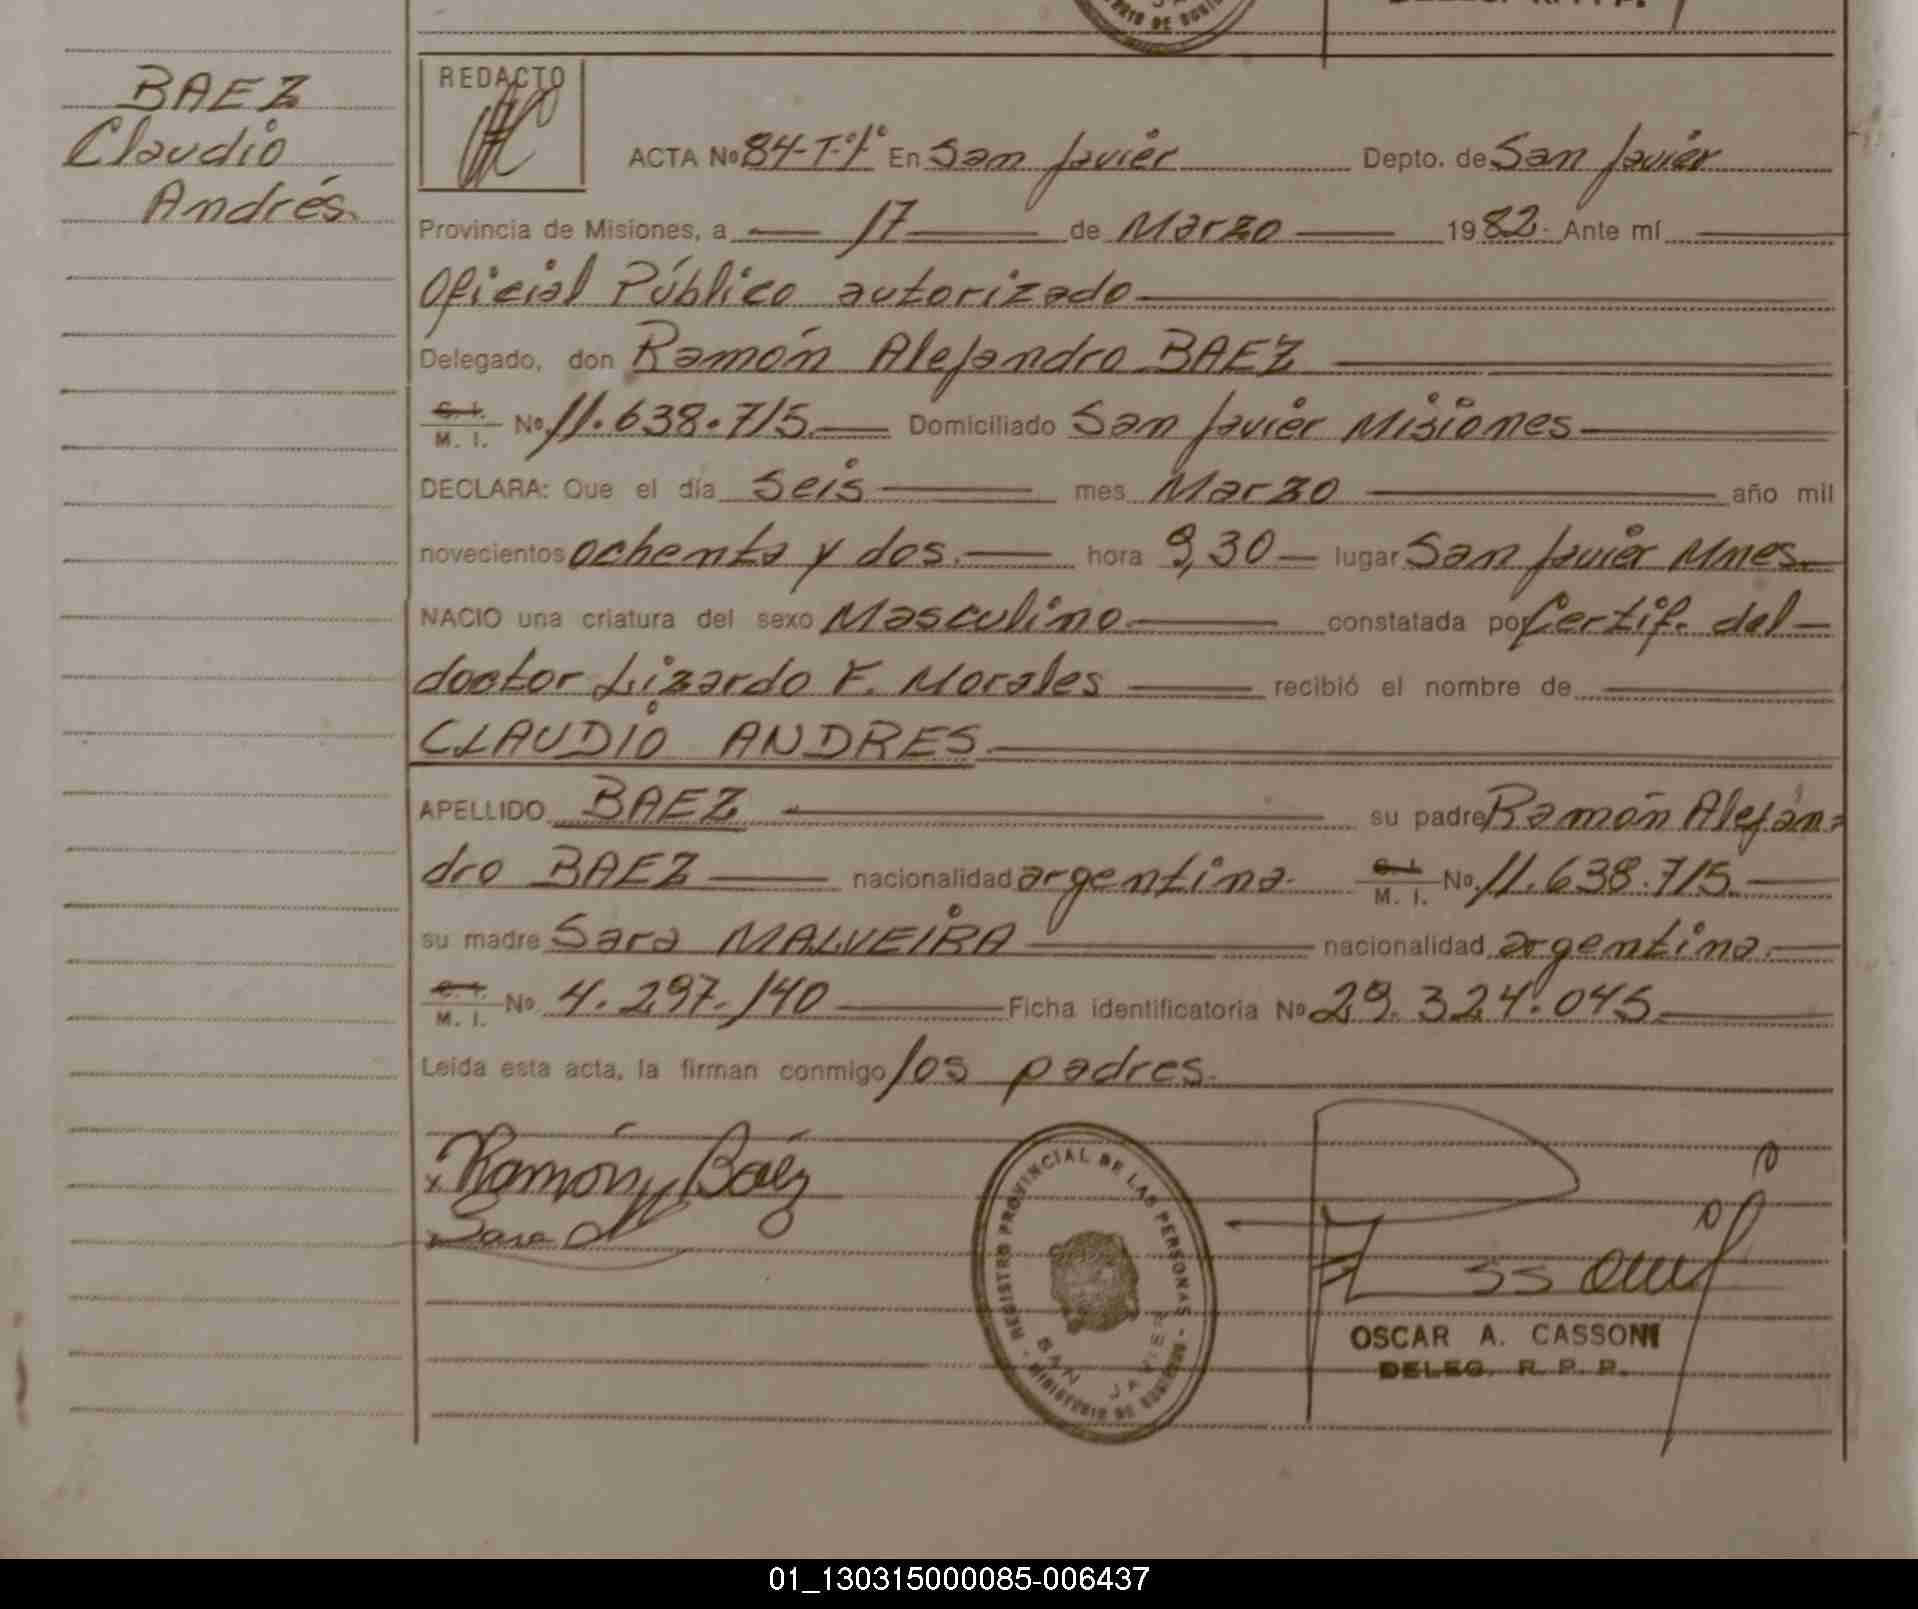 BAEZ
Claudio
Andrés.
REDACTO
ACTA Nº 84-T.º 1º En San Javier Depto. de San Javier
Provincia de Misiones, a 17 de Marzo 1982. Ante mí
Oficial Público autorizado
Delegado, don Ramón Alejandro BAEZ
C. I.
M. I. Nº 11.638.715 Domiciliado San Javier Misiones
DECLARA: Que el día Seis mes Marzo año mil
novecientos ochenta y dos. hora 9,30 lugar San Javier Mnes.
NACIO una criatura del sexo Masculino constatada por Certif. del
doctor Lizardo F. Morales recibió el nombre de
CLAUDIO ANDRES
APELLIDO BAEZ su padre Ramón Alejan=
dro BAEZ nacionalidad argentina. C. I.
M. I. Nº 11.638.715
su madre Sara MALVEIRA nacionalidad argentina.
C. I.
M. I. Nº 4.297.140 Ficha identificatoria Nº 29.324.045
Leída esta acta, la firman conmigo los padres.
Ramón Baéz
Sara
REGISTRO PROVINCIAL DE LAS PERSONAS - MINISTERIO DE GOBIERNO -
SAN JAVIER
OSCAR A. CASSONI
DELEG. R. P. P.
01_130315000085-006437